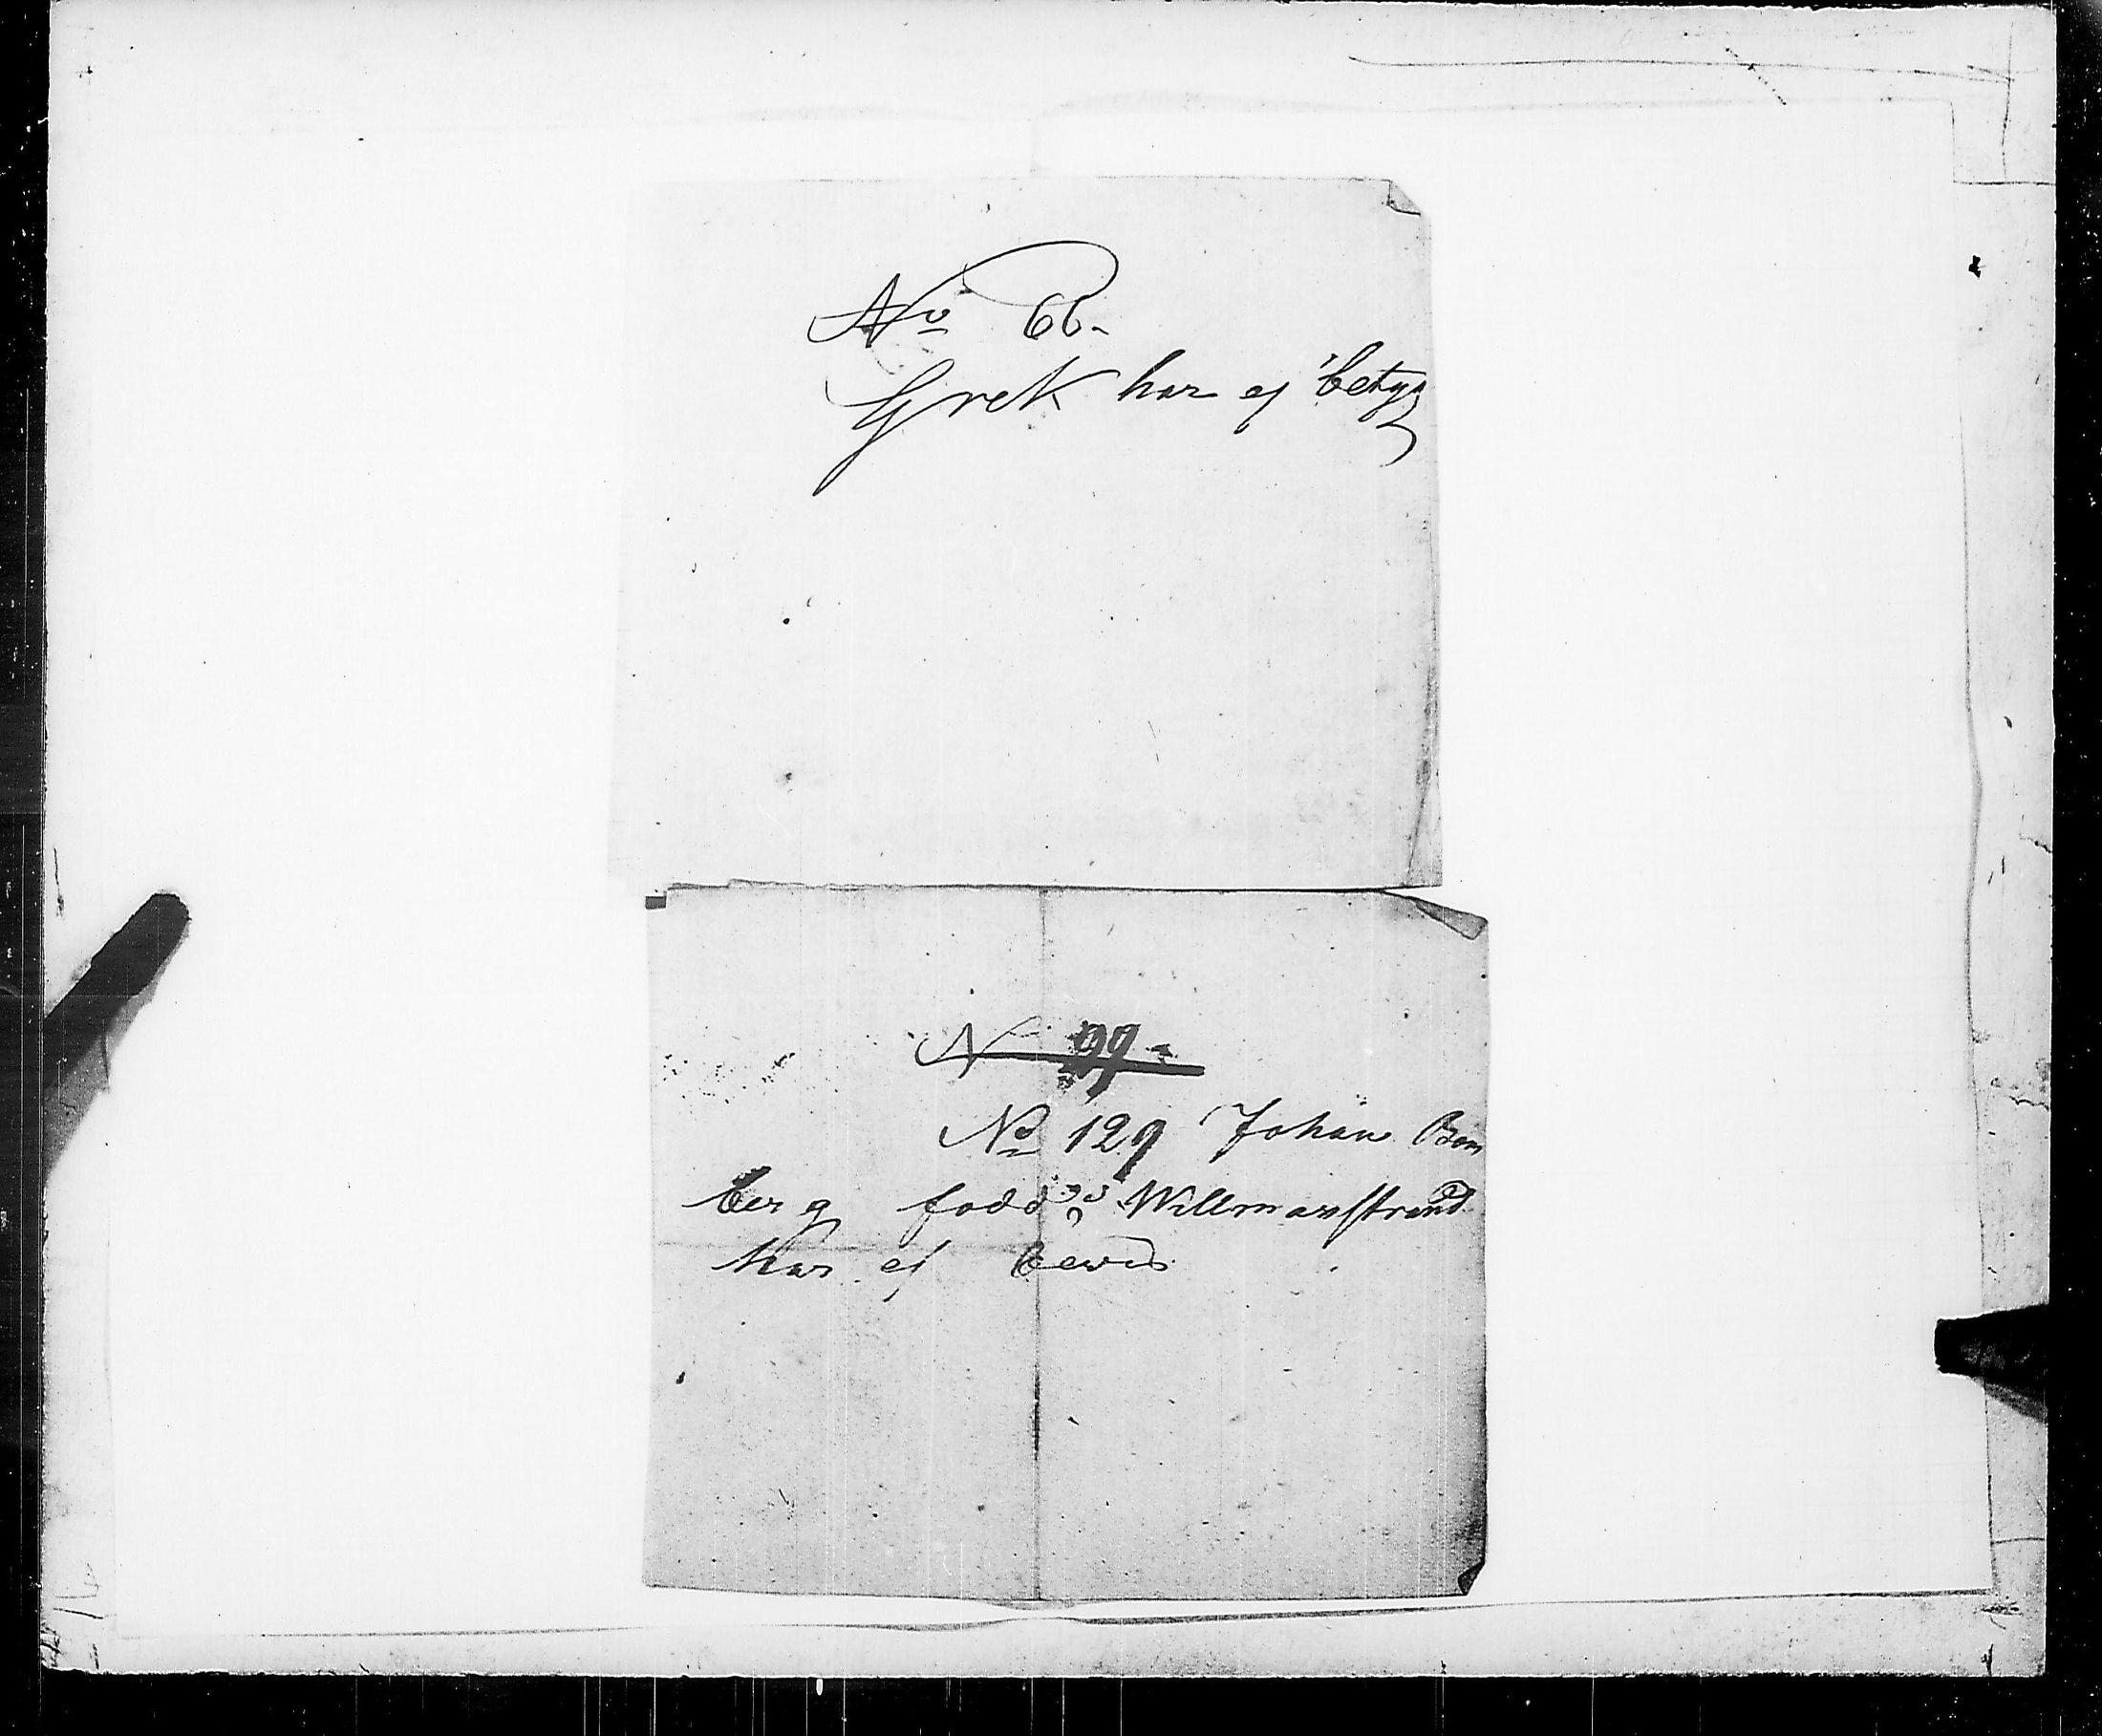 No 66.
Grek har ej betyg
N 99
No 129 Johan Bom
berg född i Willmanstrand
har ej bevis